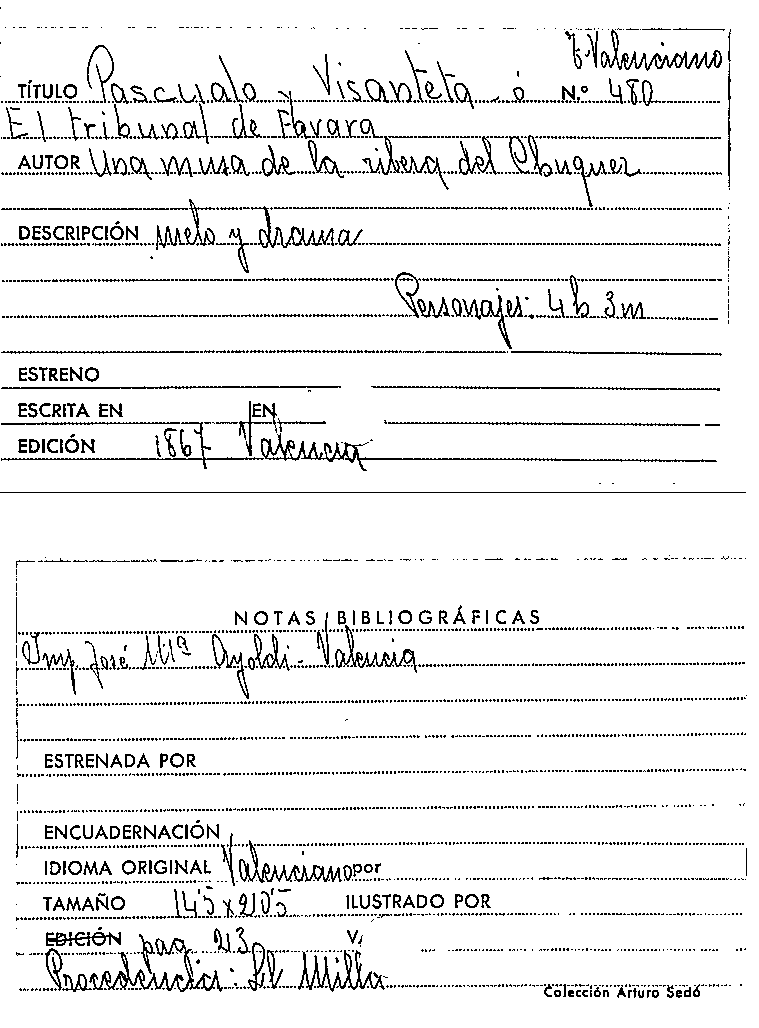 T. Valenciano
TÍTULO Pascualo y Visanteta ó N.º 480
El tribunal de Favara
AUTOR Una musa de la ribera del Chuquer
DESCRIPCIÓN melo y drama
Personajes: 4h 3m
ESTRENO
ESCRITA EN EN
EDICIÓN 1867 Valencia
NOTAS BIBLIOGRÁFICAS
Imp. José Mª Ayoldi - Valencia
ESTRENADA POR
ENCUADERNACIÓN
IDIOMA ORIGINAL Valenciano por
TAMAÑO 14'5 x 20'5 ILUSTRADO POR
EDICIÓN pag 213 V.
Procedencia: Ll Millá
Colección Arturo Sedó